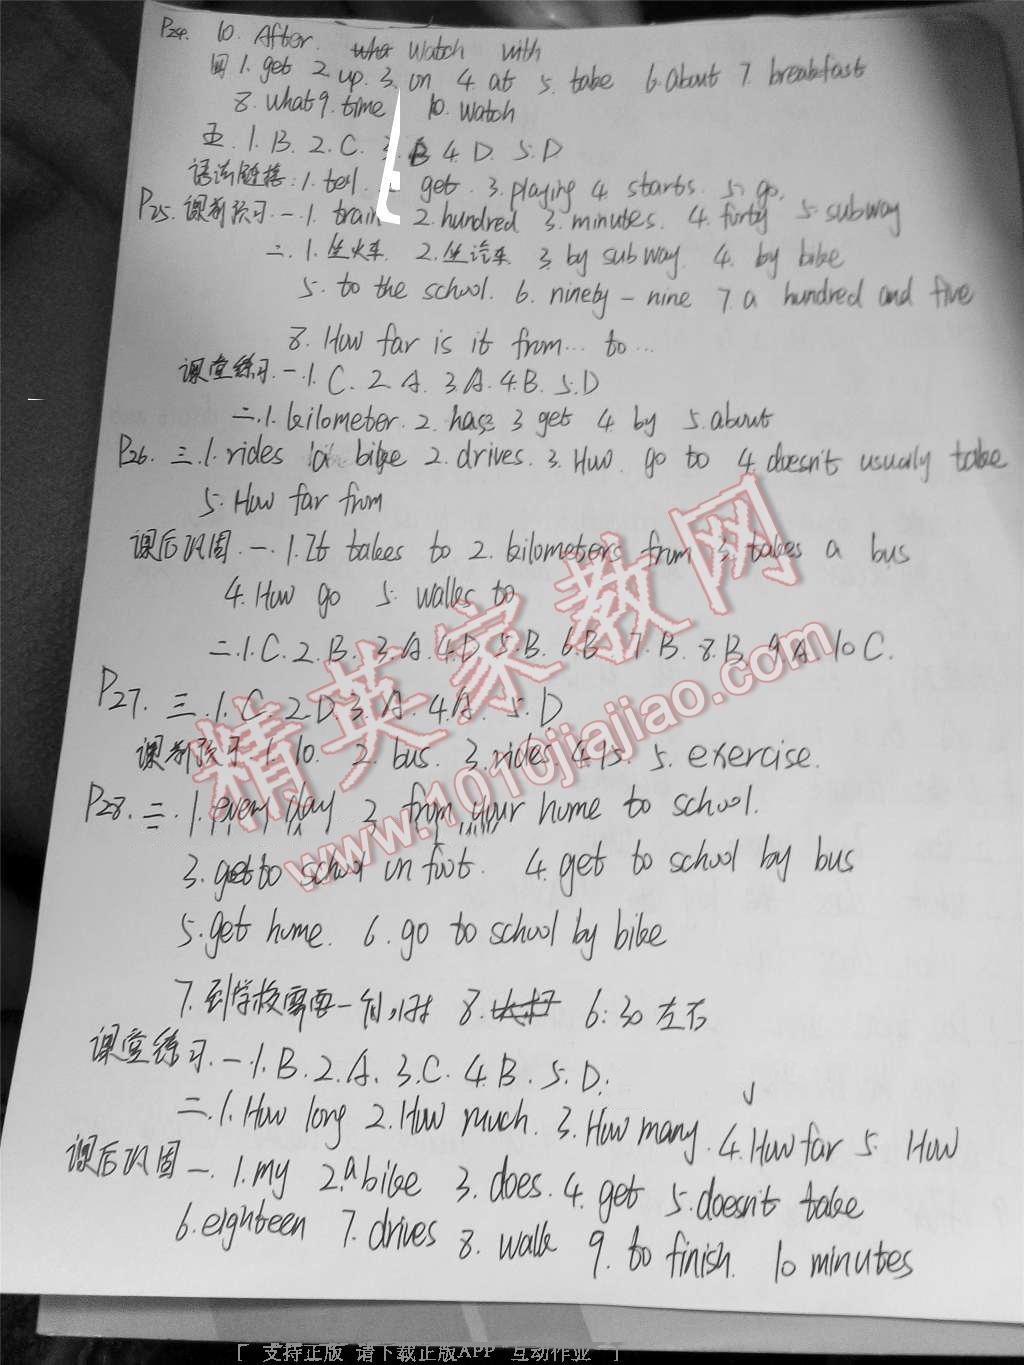 P24. 10. After. Watch with
四 1. get 2. up. 3. on 4. at 5. take 6. about 7. breakfast
8. What 9. time 10. Watch
五. 1. B. 2. C. 3. B 4. D. 5. D
语法链接: 1. tell. 2 get. 3. playing 4. starts. 5. go.
P25. 课前预习. 一. 1. train 2. hundred 3. minutes. 4. forty 5. subway
二. 1. 坐火车. 2. 坐汽车. 3. by subway. 4. by bike
5. to the school. 6. ninety-nine 7. a hundred and five
8. How far is it from... to...
课堂练习. 一. 1. C. 2. A. 3. A. 4. B. 5. D
二. 1. kilometer. 2. has 3 get 4 by 5. about
P26. 三. 1. rides a bike 2. drives. 3. How go to 4. doesn't usually take
5. How far from
课后巩固. 一. 1. It takes to 2. kilometers from 3. takes a bus
4. How go 5. walks to
二. 1. C. 2. B. 3. A. 4. D. 5. B. 6. B 7. B. 8. B. 9. A. 10 C.
P27. 三. 1. C. 2. D. 3. A. 4. A. 5. D
课前预习 1. 10. 2. bus. 3. rides. 4. 15. 5. exercise.
P28. 二. 1. every day 2. from your home to school.
3. get to school on foot. 4. get to school by bus
5. get home. 6. go to school by bike
7. 到学校需要一个小时 8. 6:30左右
课堂练习. 一. 1. B. 2. A. 3. C. 4. B. 5. D.
二. 1. How long 2. How much. 3. How many. 4. How far 5. How
课后巩固 一. 1. my 2. a bike 3. does. 4. get 5. doesn't take
6. eighteen 7. drives 8. walk 9. to finish. 10 minutes
精英家教网
www.1010jiajiao.com
[ 支持正版 请下载正版APP 互动作业 ]